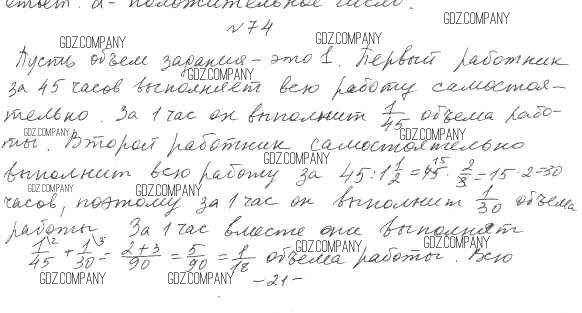 ответ: а - положительное число.
№74
Пусть объем задания - это 1. Первый работник
за 45 часов выполняет всю работу самостоя-
тельно. За 1 час он выполнит 1/45 объема рабо-
ты. Второй работник самостоятельно
выполнит всю работу за 45 : 1 1/2 = 45 15 · 2/3 = 15 · 2 = 30
часов, поэтому за 1 час он выполнит 1/30 объема
работы. За 1 час вместе они выполнят
1/45 \2 + 1/30 \3 = 2+3/90 = 5/90 = 1/18 объема работы. Всю
- 21 -
GDZ.COMPANY
GDZ.COMPANY
GDZ.COMPANY
GDZ.COMPANY
GDZ.COMPANY
GDZ.COMPANY
GDZ.COMPANY
GDZ.COMPANY
GDZ.COMPANY
GDZ.COMPANY
GDZ.COMPANY
GDZ.COMPANY
GDZ.COMPANY
GDZ.COMPANY